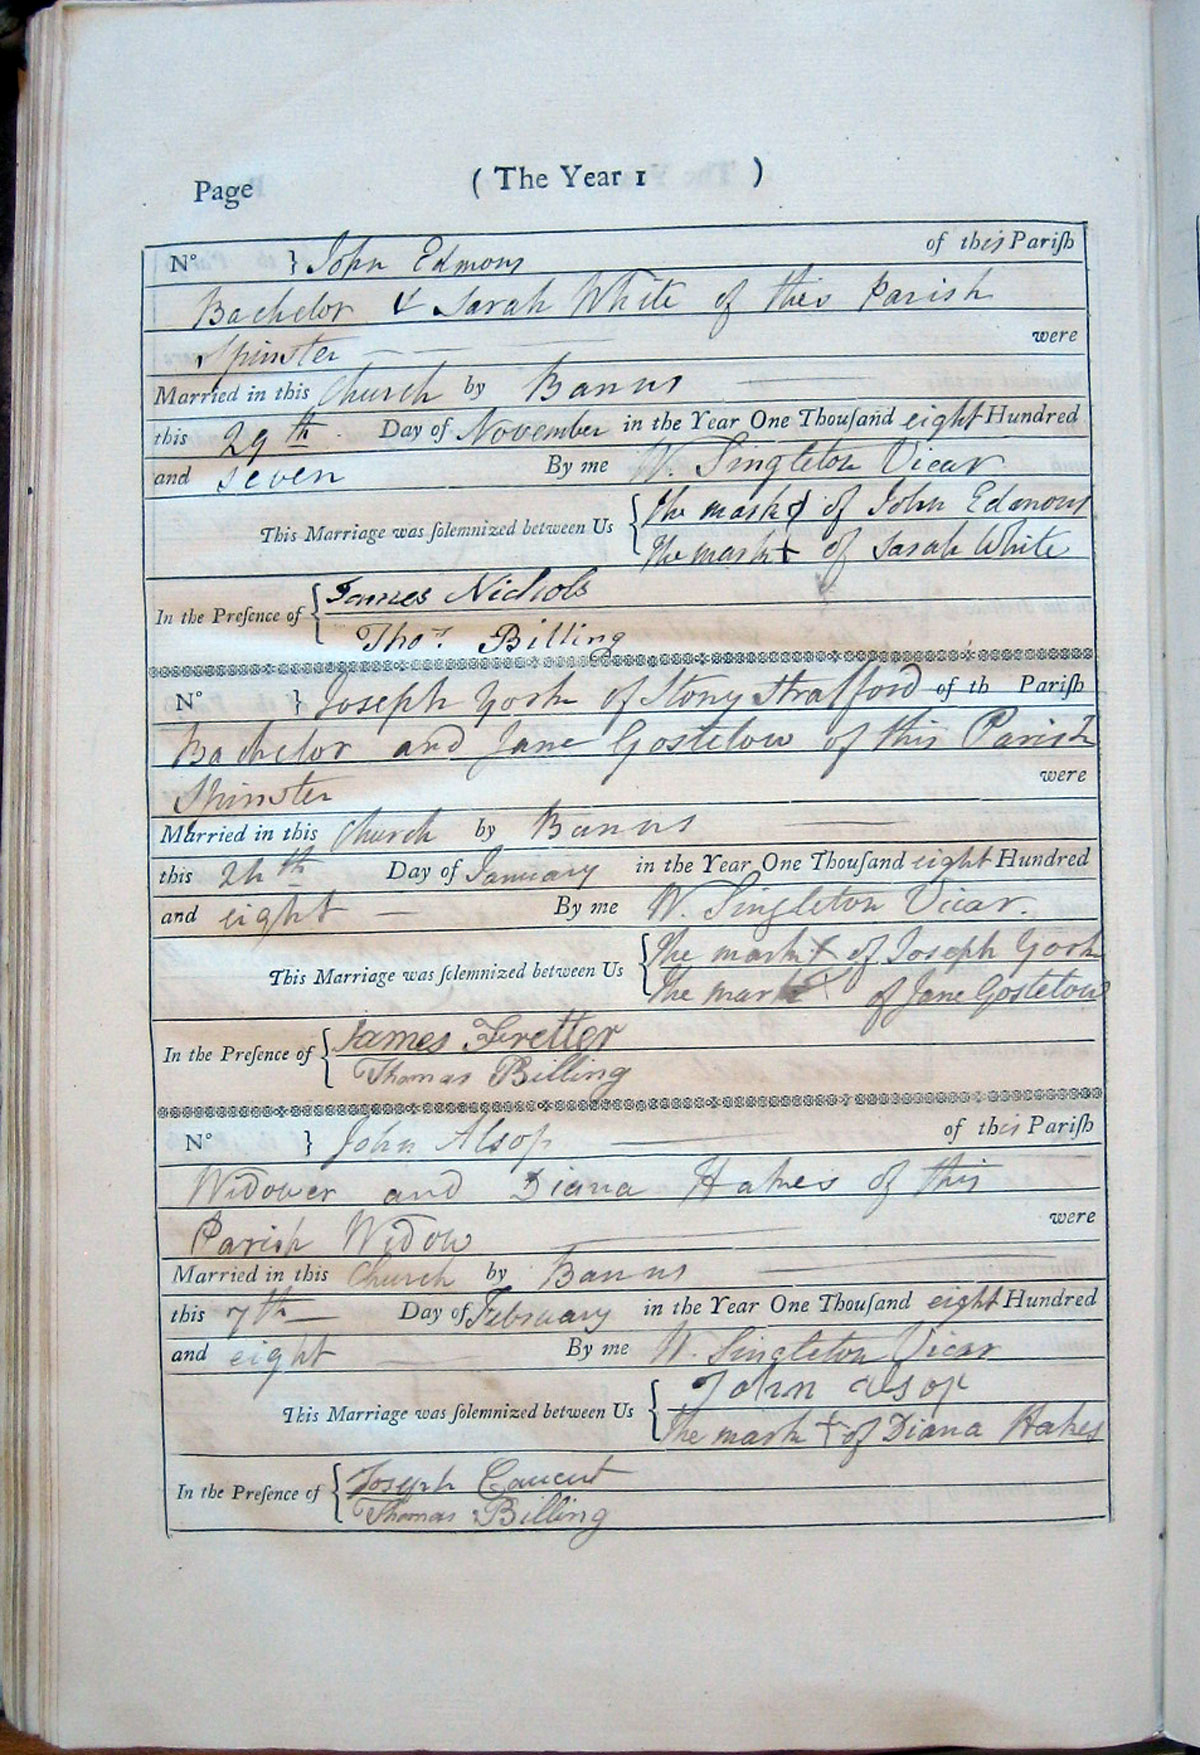 Page
( The Year 1 )
N° } John Edmons of this Pariſh
Bachelor & Sarah White of this Parish
Spinster were
Married in this Church by Banns
this 29th Day of November in the Year One Thouſand eight Hundred
and seven By me W. Singleton Vicar
This Marriage was ſolemnized between Us { the mark of John Edmons
the mark + of Sarah White
In the Preſence of { James Nichols
Thos. Billing
N° } Joseph York of Stony Stratford of th Pariſh
Bachelor and Jane Gostelow of this Parish
Spinster were
Married in this Church by Banns
this 24th Day of January in the Year One Thouſand eight Hundred
and eight By me W. Singleton Vicar.
This Marriage was ſolemnized between Us { The mark + of Joseph York
The mark + of Jane Gostelow
In the Preſence of { James Fretter
Thomas Billing
N° } John Alsop of this Pariſh
Widower and Diana Hakes of this
Parish Widow were
Married in this Church by Banns
this 7th Day of February in the Year One Thouſand eight Hundred
and eight By me W. Singleton Vicar
This Marriage was ſolemnized between Us { John Alsop
The mark + of Diana Hakes
In the Preſence of { Joseph
Thomas Billing